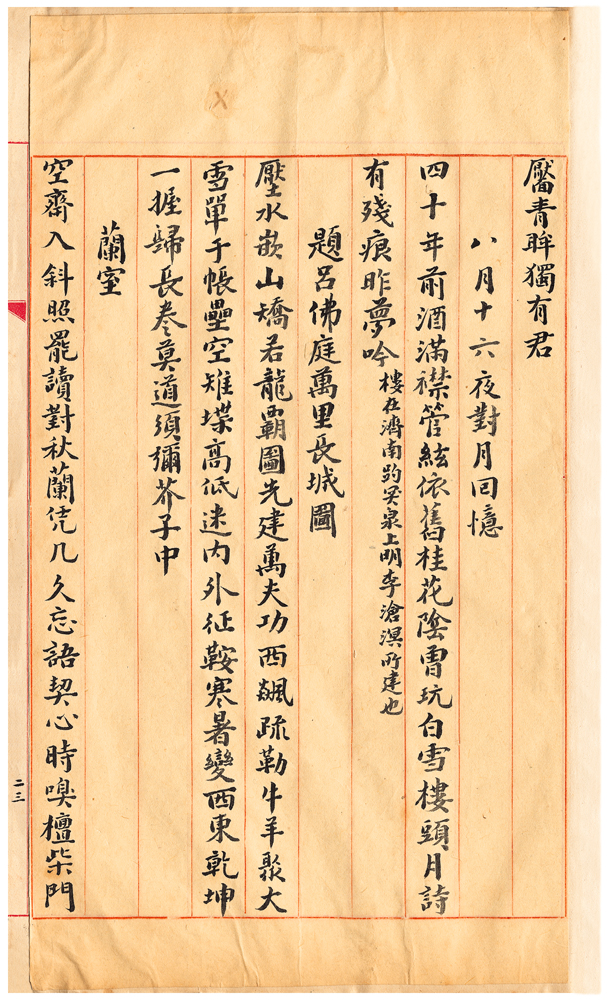 靨青眸獨有君
八月十六夜對月回憶
四十年前酒滿襟管絃依舊桂花陰曾玩白雪樓頭月詩
有殘痕昨夢吟樓在濟南趵突泉上明李滄溟所建也
題呂佛庭萬里長城圖
壓水嵌山矯若龍霸圖先建萬夫功西飆疏勒牛羊聚大
雪單于帳壘空雉堞高低迷內外征鞍寒暑變西東乾坤
一握歸長卷莫道須彌芥子中
蘭室
空齋入斜照罷讀對秋蘭凭几久忘語契心時嗅檀柴門
二三